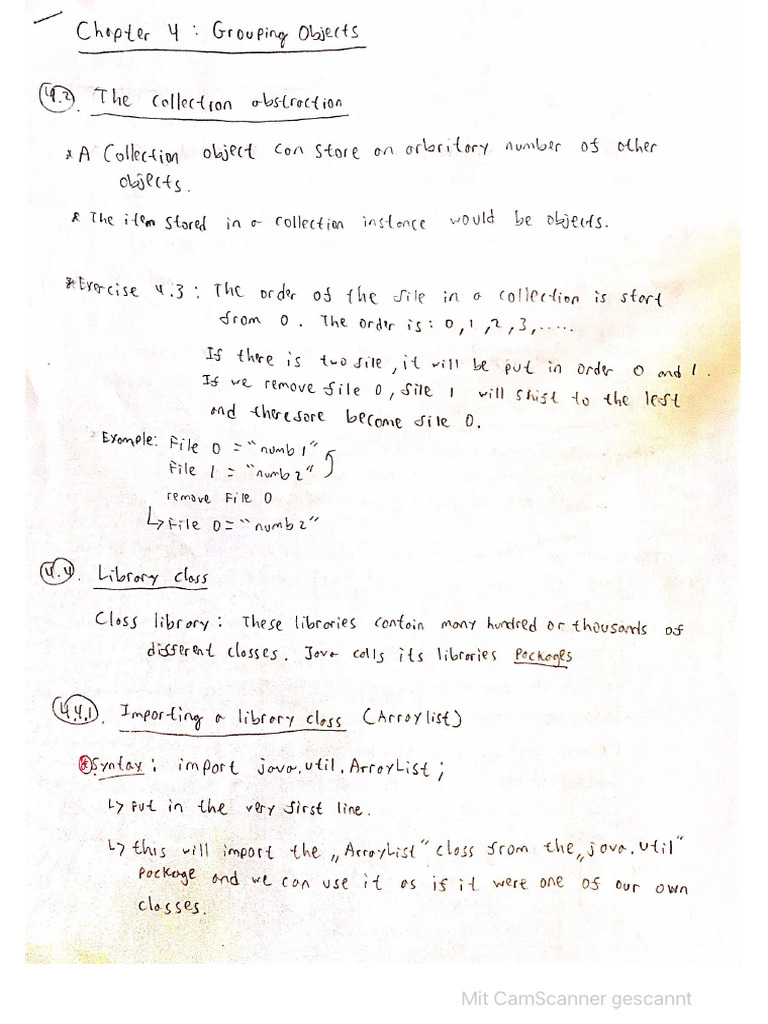 Chapter 4 : Grouping Objects
4.2. The collection abstraction
* A Collection object can store an arbritary number of other
objects.
* The item stored in a collection instance would be objects.
* Exercise 4.3 : The order of the file in a collection is start
from 0. The order is : 0, 1, 2, 3, .....
If there is two file, it will be put in order 0 and 1.
If we remove file 0, file 1 will shift to the left
and therefore become file 0.
Example: File 0 = "numb 1"
File 1 = "numb 2"
remove File 0
↳ File 0 = "numb 2"
4.4. Library class
Class library : These libraries contain many hundred or thousands of
different classes. Java calls its libraries packages
4.4.1. Importing a library class (Arraylist)
* Syntax : import java.util.ArrayList ;
↳ Put in the very first line.
↳ this will import the „ArrayList" class from the „java.util"
package and we can use it as if it were one of our own
classes.
Mit CamScanner gescannt